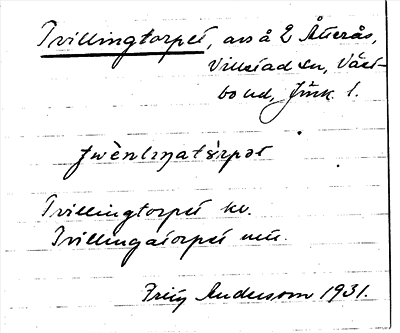 Tvillingtorpet, avs å 2 Åtterås,
Villstad sn, Väst-
bo hd, Jönk. l.
Tvillingtorpet kv.
Tvillingatorpet
Fritz Andersson 1931.